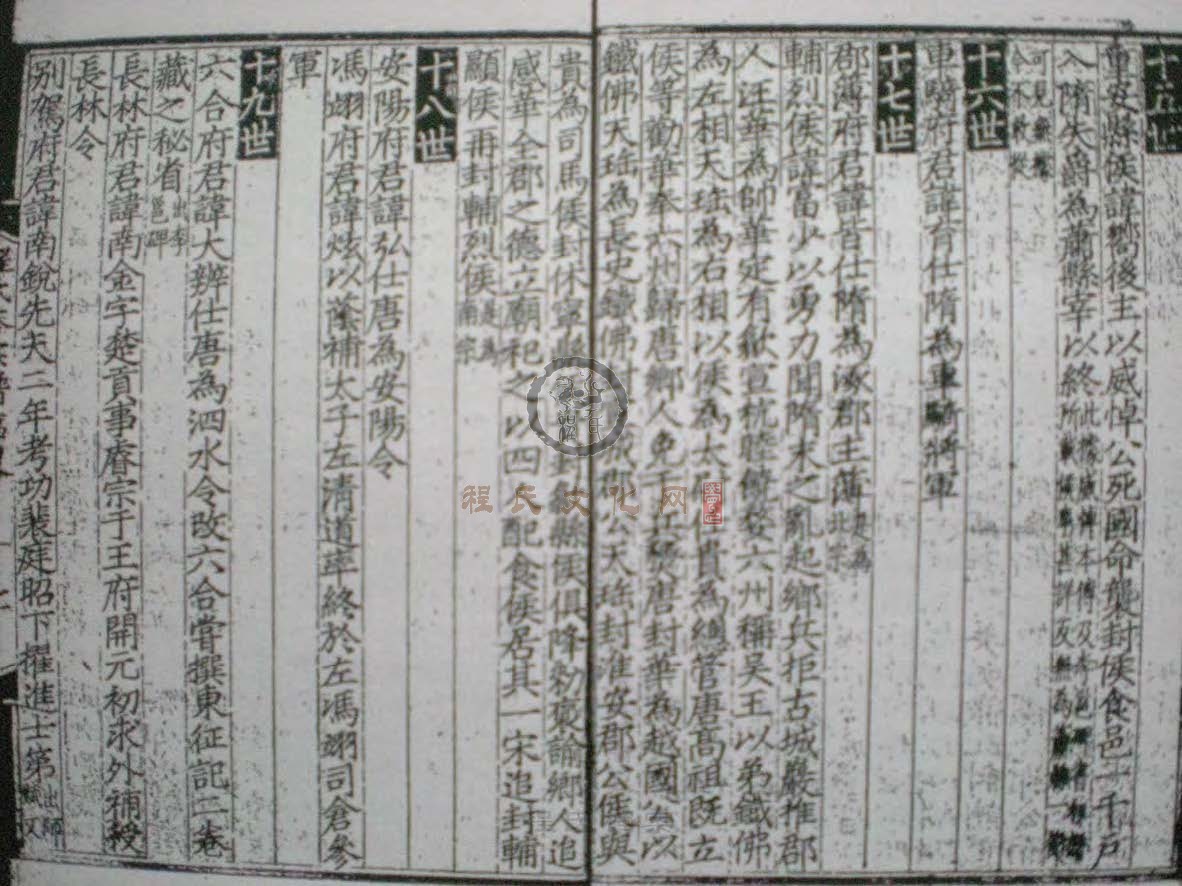 十五世
重安縣侯諱嚮後主以威悼公死國命襲封侯食邑一千戶
入隋失爵為蕭縣宰以終此據威悼本傳及
十六世
車騎府君諱育仕隋為車騎將軍
十七世
郡薄府君諱皆仕隋為涿郡主薄
輔烈侯諱富少以勇力聞隋末之亂起鄉兵拒古城巖推郡
人汪華為帥華定有歙宣杭睦饒婺六州稱吳王以弟鐵佛
為左相天瑤為右相以侯為太 貴為總管唐高祖既立
侯等勸華奉六州歸唐鄉人免干 唐封華為越國公以
鐵佛天瑤為長史鐵佛封 公天瑤封淮安郡公侯與
貴為司馬侯封休寧縣 封歙縣侯俱降勑褒諭鄉人追
感華全郡之德立廟祀之以四 配食侯居其一宋追封輔
顯侯再封輔烈侯
十八世
安陽府君諱弘仕唐為安陽令
馮翊府君諱炫以蔭補太子左清道率終於左馮翊司倉參
軍
十九世
六合府君諱大辨仕唐為泗水令改六合嘗撰東征記二卷
藏之秘省出李邕碑
長林府君諱南金字楚貢事睿宗于王府開元初求外補授
長林令
別駕府君諱南銳先天二年考功裴庭昭下擢進士第出師
程氏文化网